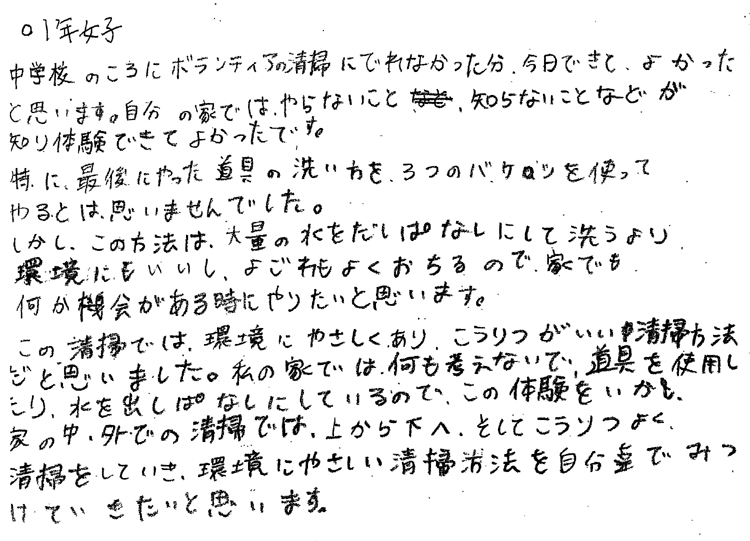 ○1年女子
中学校のころにボランティアの清掃にでれなかった分、今日できて、よかった
と思います。自分の家では、やらないこと、知らないことなどが
知り体験できてよかったです。
特に、最後にやった道具の洗い方を、3つのバケツを使って
やるとは、思いませんでした。
しかし、この方法は、大量の水をだしぱなしにして洗うより
環境にもいいし、よごれもよくおちるので、家でも
何か機会がある時にやりたいと思います。
この清掃では、環境にやさしくあり、こうりつがいい清掃方法
だと思いました。私の家では、何も考えないで、道具を使用し
たり、水を出しぱなしにしているので、この体験をいかし、
家の中・外での清掃では、上から下へ、そしてこうりつよく、
清掃をしていき、環境にやさしい清掃方法を自分達でみつ
けていきたいと思います。